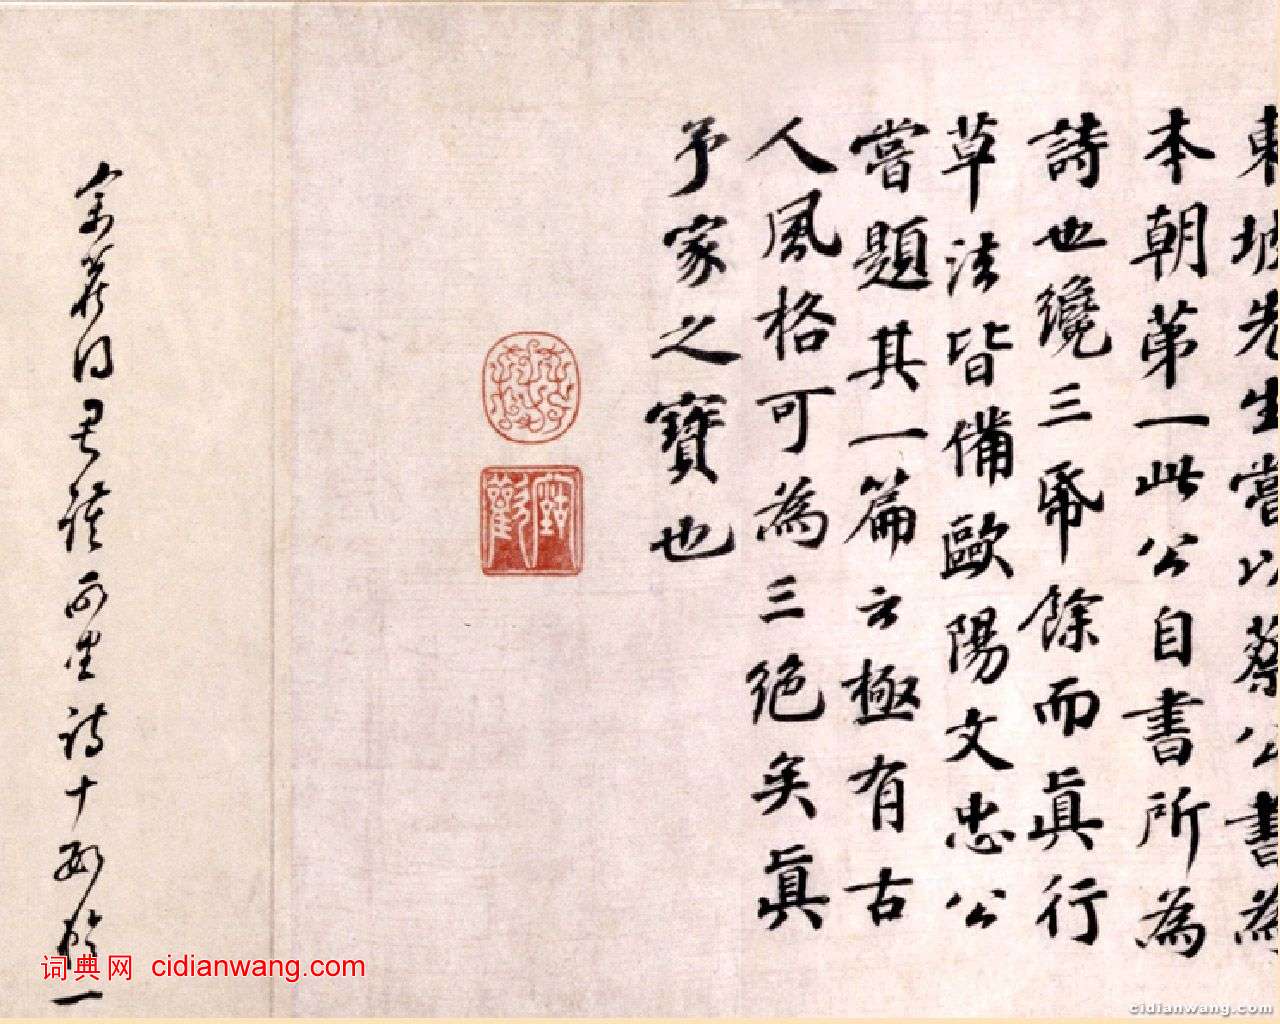 東坡先生嘗以蔡公書為
本朝苐一此公自書所為
詩也纔三帋餘而真行
草法皆備歐陽文忠公
嘗題其一篇云極有古
人風格可為三絶矣真
予家之寶也
余舊日君謨所坐詩十
一
词典网 cidianwang.com
cidianwang.com